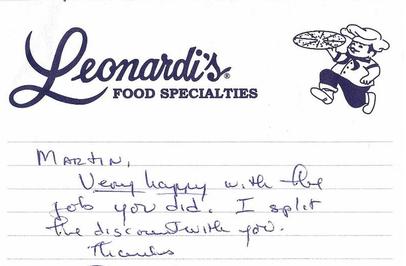 Leonardi's®
FOOD SPECIALTIES
MARTIN,
Very happy with the
job you did. I split
the discount with you.
Thanks